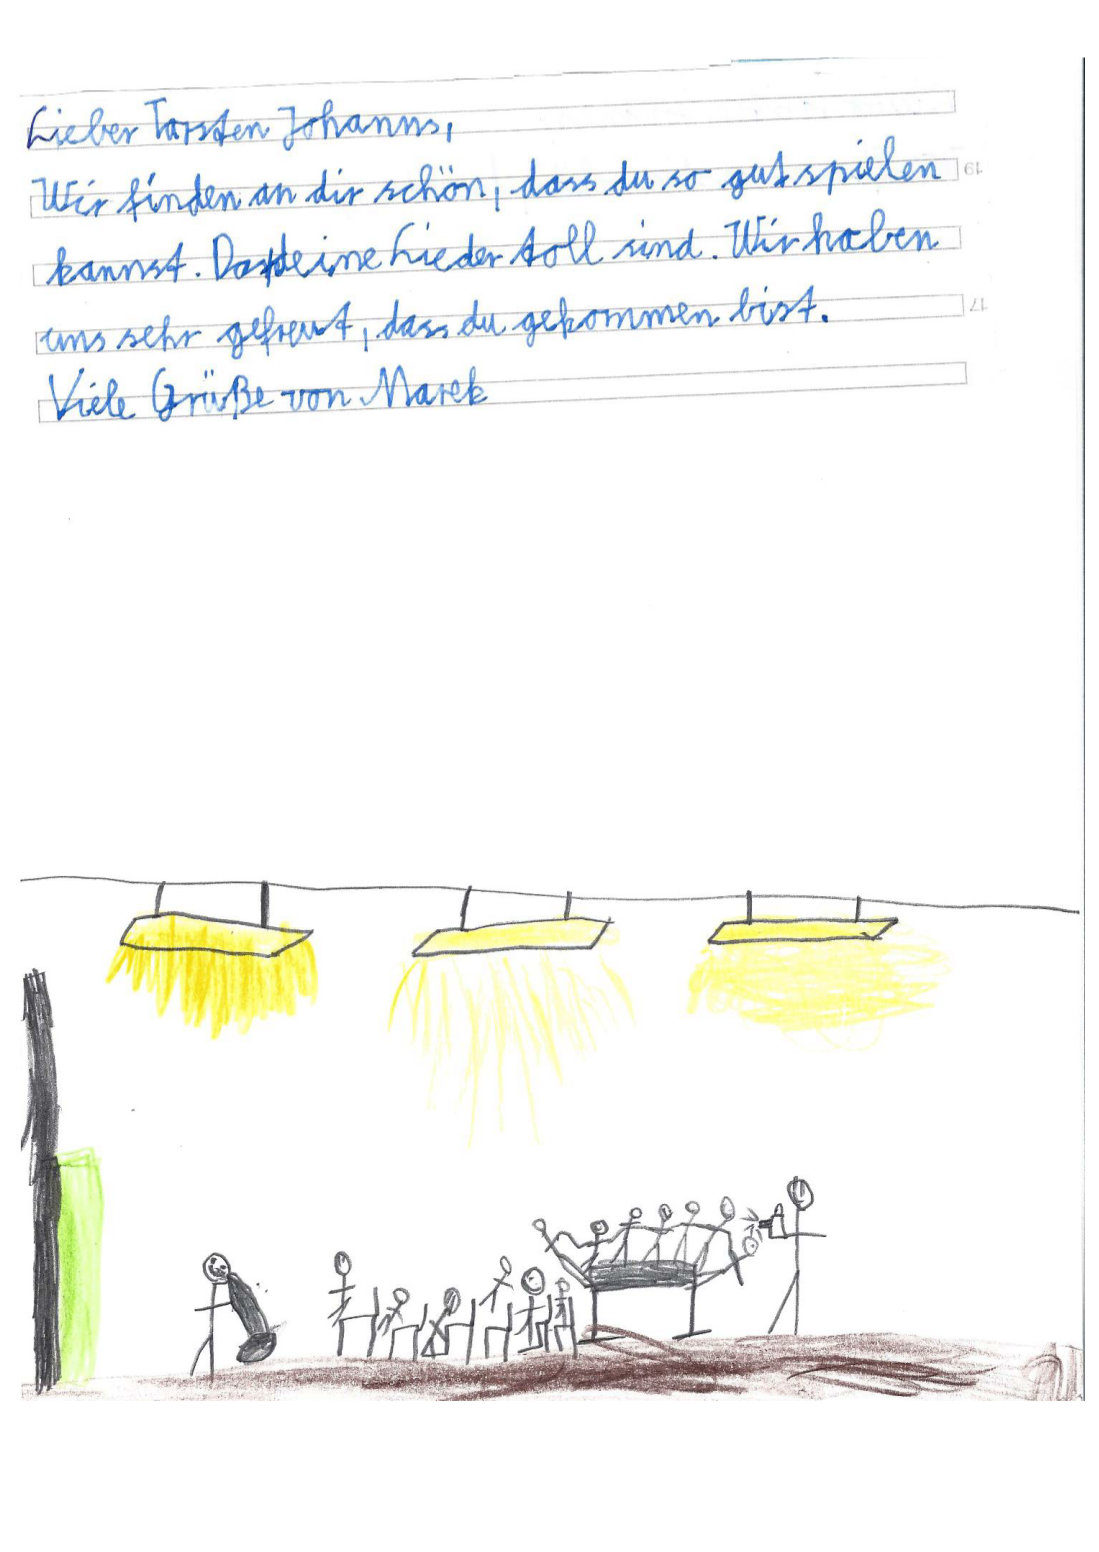 Lieber Torsten Johanns,
Wir finden an dir schön, dass du so gut spielen
kannst. Das deine Lieder toll sind. Wir haben
uns sehr gefreut, dass du gekommen bist.
Viele Grüße von Marek
19
17